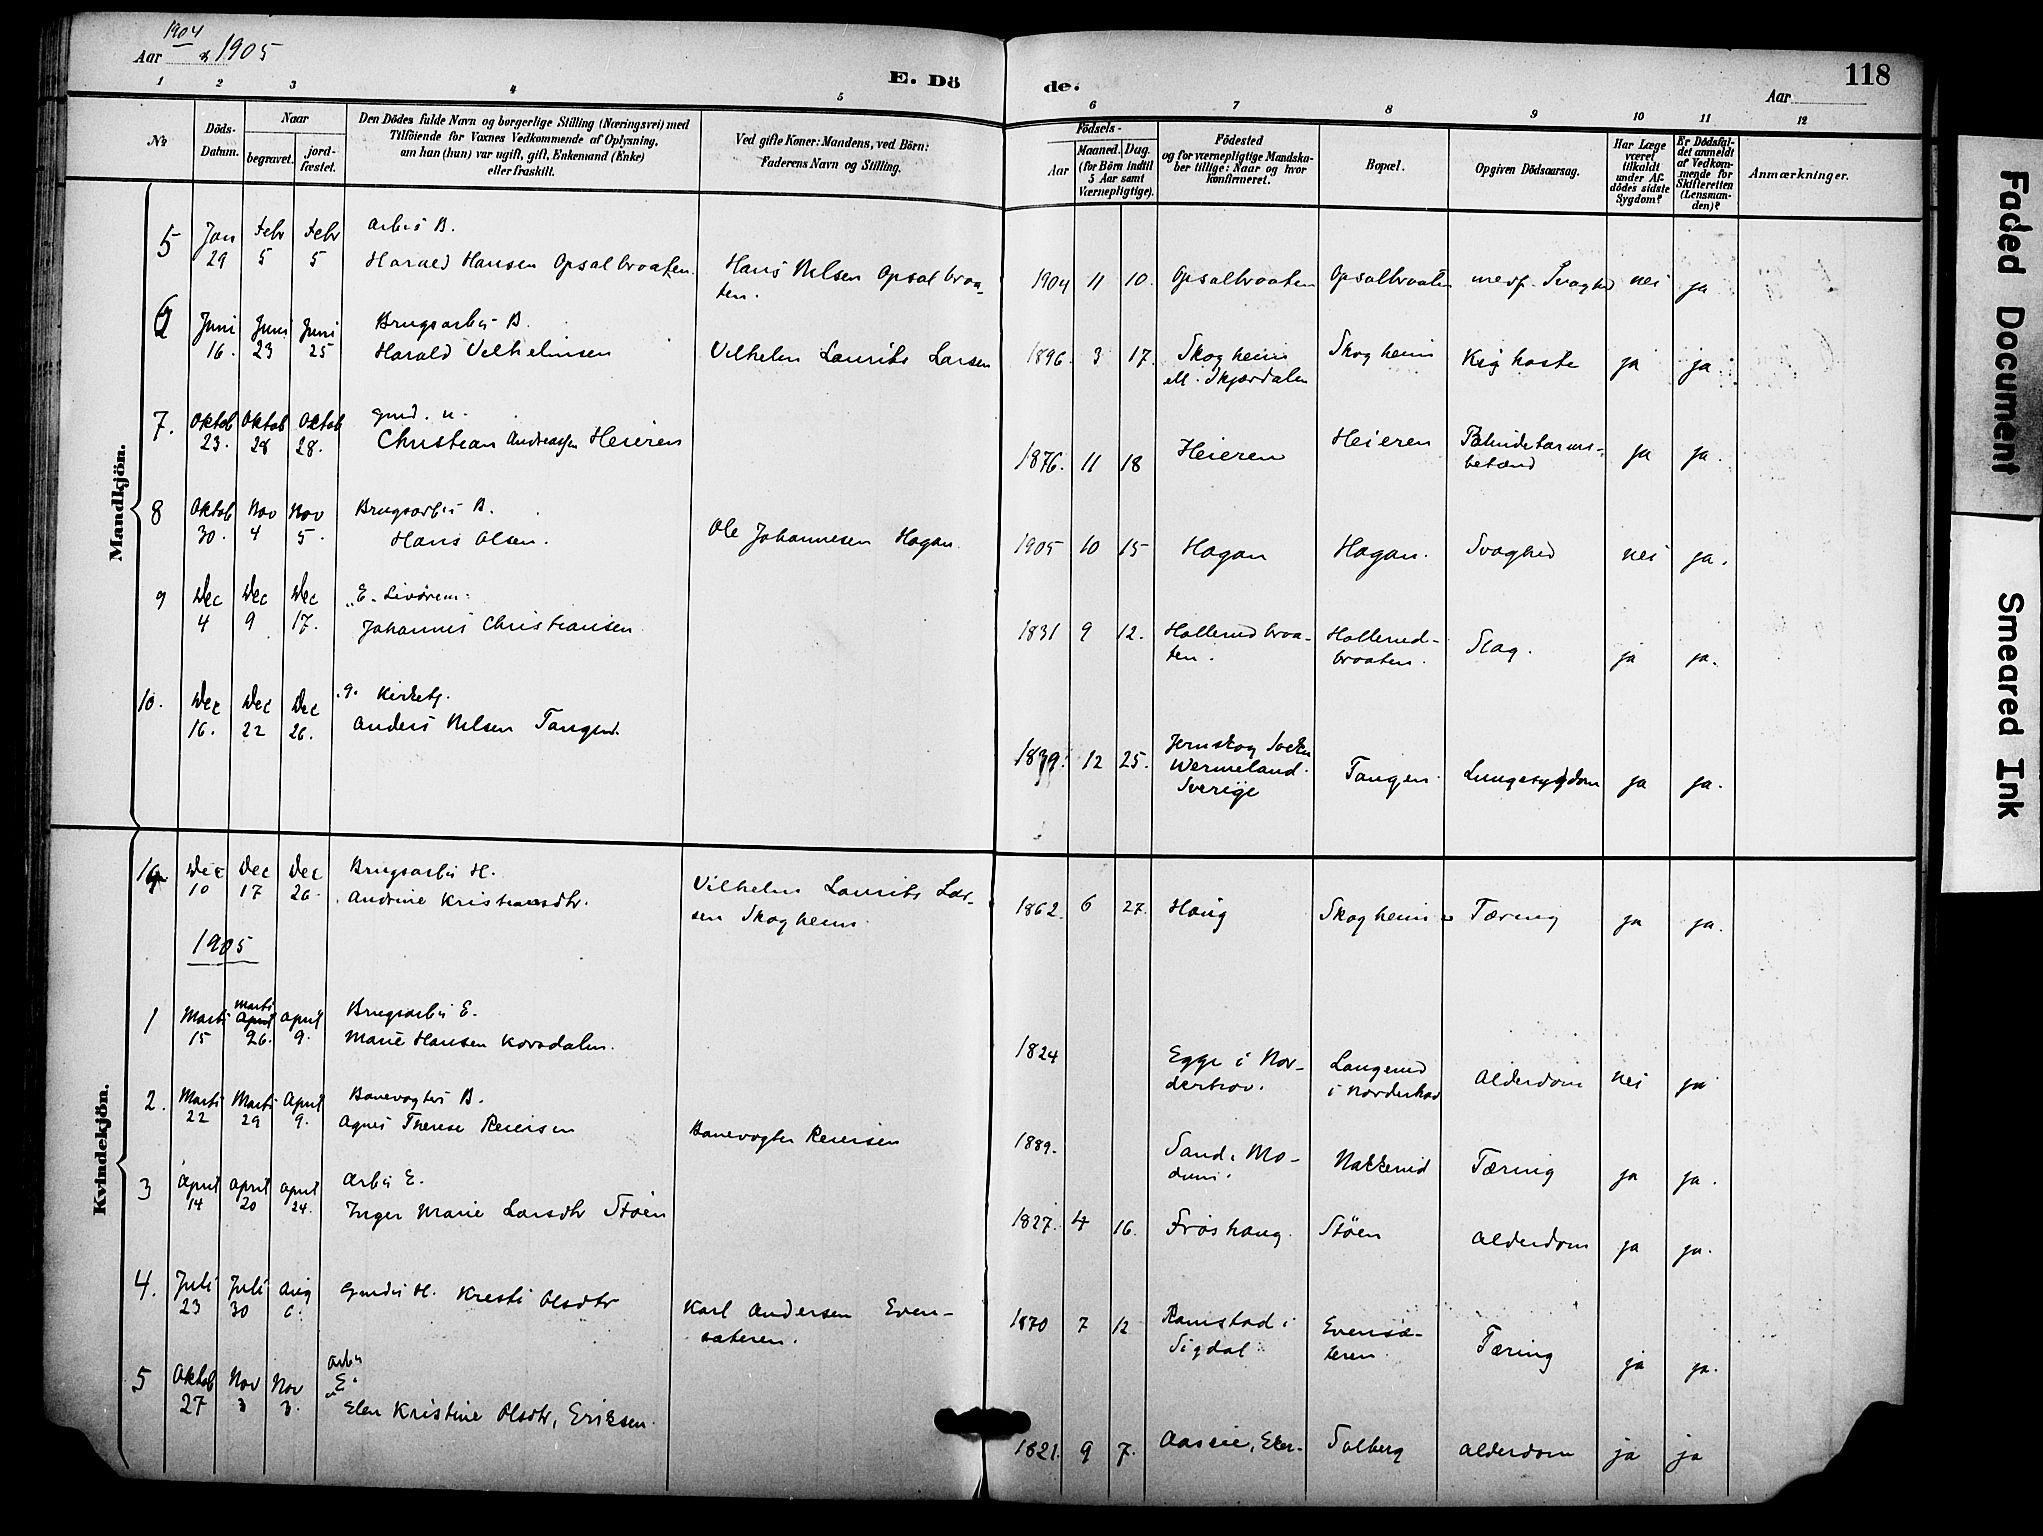 1904
Aar & 1905
E. Dö
de.
118
Aar
1 2 3 4 5 6 7 8 9 10 11 12
No
Döds-
Datum.
Naar
begravet.
jord-
fæstet.
Den Dödes fulde Navn og borgerlige Stilling (Næringsvei) med
Tilföiende for Voxnes Vedkommende af Oplysning,
om han (hun) var ugift, gift, Enkemand (Enke)
eller fraskilt.
Ved gifte Koner: Mandens, ved Börn:
Faderens Navn og Stilling.
Födsels-
Aar
Maaned. Dag.
(for Börn indtil
5 Aar samt
Værnepligtige).
Födested
og for værnepligtige Mandska-
ber tillige: Naar og hvor
konfirmeret.
Bopæl.
Opgiven Dödsaarsag.
Har Læge
været
tilkaldt
under Af-
dödes sidste
Sygdom?
Er Dödsfal-
det anmeldt
af Vedkom-
mende for
Skifteretten
(Lensman-
den)?
Anmærkninger.
Mandkjön.
5 Jan 29 Febr 5 Febr 5 Arbs B.
Harald Hansen Opsalbraaten. Hans Nilsen Opsalbraa-
ten. 1904 11 10. Opsalbraaten Opsalbraaten Svaghed nei ja
6 Juni 16. Juni 23 Juni 25 Brugsarbs B.
Harald Vilhelmsen Vilhelm Laurits Larsen 1896. 3 17. Skogheim
Skjærdalen Skogheim Kighoste ja ja
7. Oktob 23. Oktob 28 Oktob 28. Gmd. u.
Christian Andreassen Heieren 1876. 11 18 Heieren Heieren Blindetarms-
betænd ja ja.
8 Oktob 30. Nov 4 Nov 5. Brugsarbs B.
Hans Olsen. Ole Johannesen Hagan. 1905 10 15 Hagan Hagan. Svaghed nei ja.
9 Dec 4 Dec 9 Dec 17.
Johannes Christiansen. 1831 9 12. Hollerudbraa-
ten. Hollerud-
braaten. Slag. ja ja.
10. Dec 16. Dec 22 Dec 26. g. Kirketj.
Anders Nilsen Tangen. 12 25. Jernskog Sokn
Wermeland.
Sverige Tangen. Lungesygdom ja ja.
Kvindekjön.
Dec 10 Dec 17 Dec 26. Brugsarbs H.
Andrine Kristiansdtr. Vilhelm Laurits Lar-
sen Skogheim. 1862. 6 27. Haug Skogheim Tæring ja ja.
1905
1 Marts 15 Marts April 26. April 9. Brugsarbs E.
Marie Hansen Korsdalen. 1824 Egge i Nor-
derhov. Langerud
i Norderhov Alderdom nei ja
2. Marts 22 Marts 29 April 9. Banevogters B.
Agnes Therese Reiersen Banevogter Reiersen 1889. Sand i Mo-
dum. Nakkerud Tæring ja ja.
3 April 14 April 20 April 24. Arbs E.
Inger Marie Larsdtr Støen 1827. 4 16. Frøshaug. Støen Alderdom ja ja.
4. Juli 23 Juli 30 Aug 6. Gmds H. Kristi Olsdtr Karl Andersen Even-
sæteren. 1870 7 12 Ramstad i
Sigdal Evensæ-
teren. Tæring ja ja.
5 Oktob 27 Nov 3 Nov 3. Arbs
"E"
Elen Kristine Olsdtr, Eriksen. 1821. 9 7. Aasen, Eker. Solberg Alderdom ja ja
Faded Document
Smeared Ink